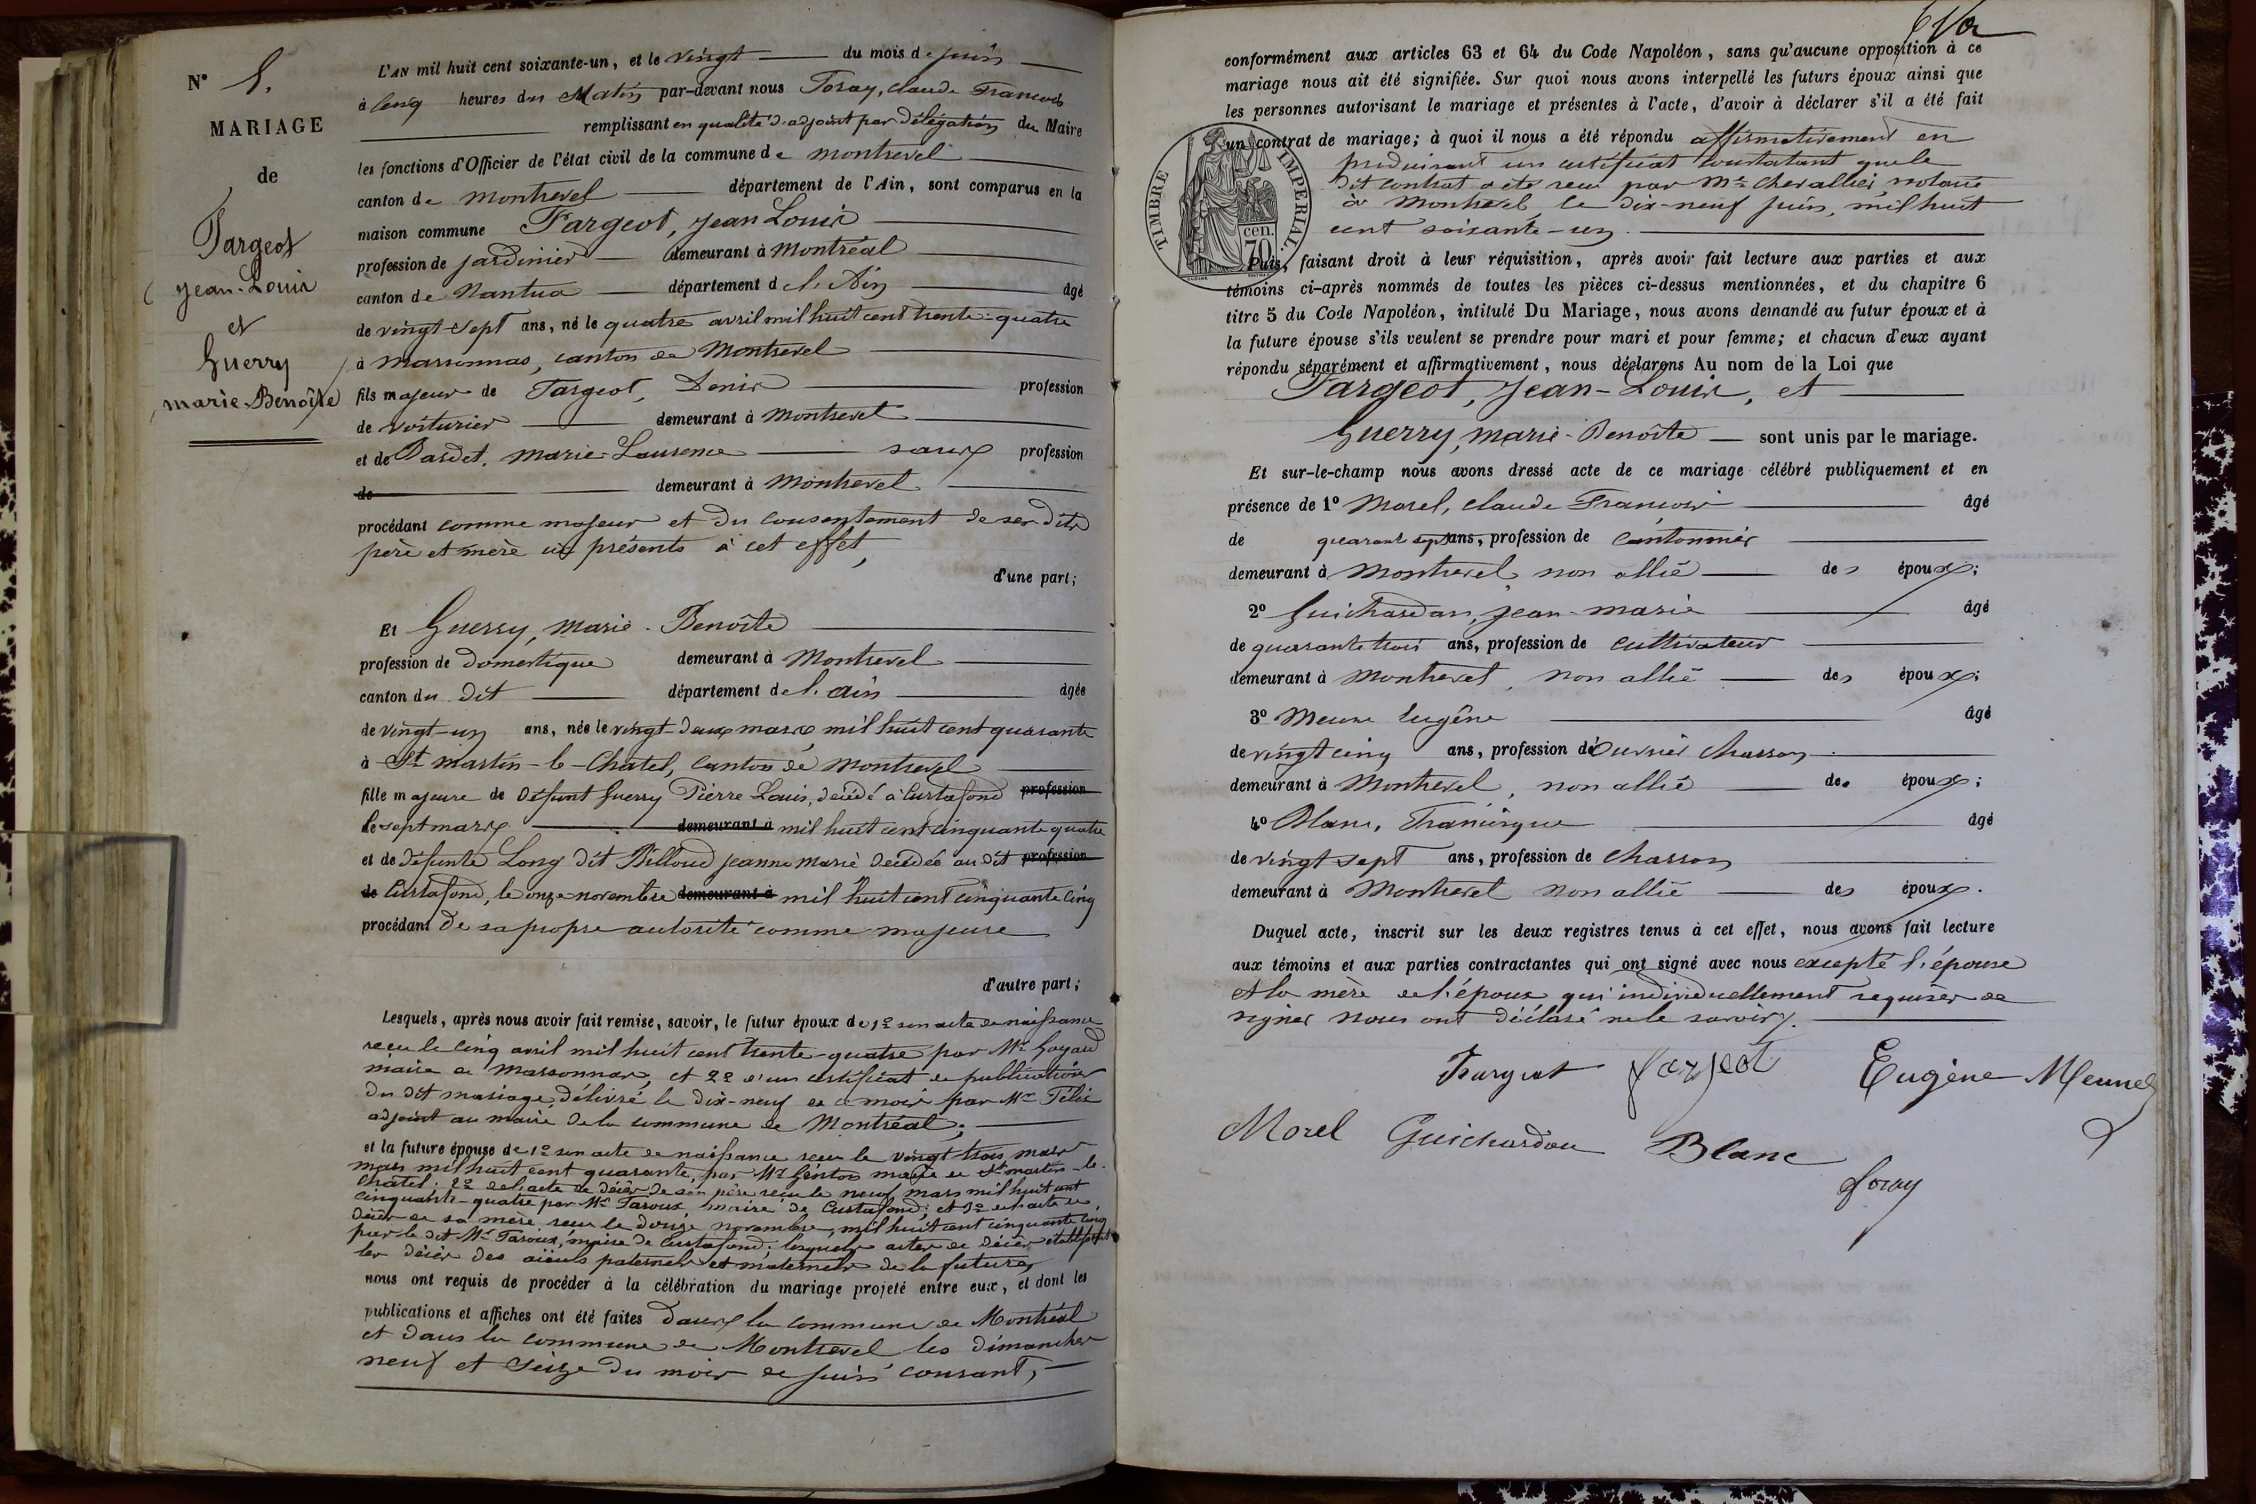 N° 8.
MARIAGE
de
Fargeot
Jean-Louis
et
Guerry
Marie-Benoîte
L'AN mil huit cent soixante-un, et le vingt du mois de juin
à cinq heures du Matin par-devant nous Foray, Claude François
remplissant en qualité d'adjoint par délégation du Maire
les fonctions d'Officier de l'état civil de la commune de Montrevel
canton de Montrevel département de l'Ain, sont comparus en la
maison commune Fargeot, Jean Louis
profession de jardinier demeurant à Montréal
canton de Nantua département de l'Ain âgé
de vingt-sept ans, né le quatre avril mil huit cent trente-quatre
à Marsonnas, canton de Montrevel
fils majeur de Fargeot, Denis profession
de voiturier demeurant à Montrevel
et de Pardet, Marie Laurence sans profession
de demeurant à Montrevel
procédant comme majeur et du consentement de ses dits
père et mère ici présents à cet effet,
d'une part;
Et Guerry, Marie-Benoîte
profession de domestique demeurant à Montrevel
canton du dit département de l'ain âgée
de vingt-un ans, née le vingt-deux mars mil huit cent quarante
à St martin-le-Chatel, canton de Montrevel
fille majeure de défunt Guerry Pierre Louis, décédé à Curtafond profession
le sept mars demeurant à mil huit cent cinquante quatre
et de défunte Long dit Billoud Jeanne Marie décédée au dit profession
de Curtafond, le onze novembre demeurant à mil huit cent cinquante cinq
procédant de sa propre autorité comme majeure
d'autre part;
Lesquels, après nous avoir fait remise, savoir, le futur époux de 1° son acte de naissance
reçu le cinq avril mil huit cent trente-quatre par Mr Goyard
maire de Marsonnas, et 2° d'un certificat de publication
du dit mariage délivré le dix-neuf de ce mois par Mr Félix
adjoint au maire de la commune de Montréal;
et la future épouse de 1° son acte de naissance reçu le vingt trois mars
mars mil huit cent quarante, par Mr Gentos maire de St martin-le-
Chatel; 2° de l'acte de décès de son père reçu le neuf mars mil huit cent
cinquante-quatre par Mr Faroux, maire de Curtafond; et 3° de l'acte de
décès de sa mère reçu le douze novembre, mil huit cent cinquante cinq
par le dit Mr Faroux, maire de Curtafond; lesquels actes de décès établissent
les décès des aïeuls paternels et maternels de la future,
nous ont requis de procéder à la célébration du mariage projeté entre eux, et dont les
publications et affiches ont été faites dans la commune de Montréal
et dans la commune de Montrevel les dimanches
neuf et seize du mois de juin courant,
conformément aux articles 63 et 64 du Code Napoléon, sans qu'aucune opposition à ce
mariage nous ait été signifiée. Sur quoi nous avons interpellé les futurs époux ainsi que
les personnes autorisant le mariage et présentes à l'acte, d'avoir à déclarer s'il a été fait
un contrat de mariage; à quoi il nous a été répondu affirmativement en
produisant un certificat constatant que le
dit contrat a été reçu par Mr Chevallier, notaire
à Montrevel le dix-neuf juin, mil huit
cent soixante-un.
TIMBRE IMPERIAL
cen.
70
Puis, faisant droit à leur réquisition, après avoir fait lecture aux parties et aux
témoins ci-après nommés de toutes les pièces ci-dessus mentionnées, et du chapitre 6
titre 5 du Code Napoléon, intitulé Du Mariage, nous avons demandé au futur époux et à
la future épouse s'ils veulent se prendre pour mari et pour femme; et chacun d'eux ayant
répondu séparément et affirmativement, nous déclarons Au nom de la Loi que
Fargeot, Jean-Louis, et
Guerry, Marie-Benoîte sont unis par le mariage.
Et sur-le-champ nous avons dressé acte de ce mariage célébré publiquement et en
présence de 1° Morel, Claude François âgé
de quarant sept ans, profession de cantonnier
demeurant à Montrevel non allié des époux;
2° Guichardan, Jean-Marie âgé
de quarante trois ans, profession de cultivateur
demeurant à Montrevel, non allié des époux;
3° Meune Eugène âgé
de vingt cinq ans, profession d'ouvrier charron
demeurant à Montrevel, non allié des époux;
4° Blanc, Francisque âgé
de vingt sept ans, profession de charron
demeurant à Montrevel non allié des époux.
Duquel acte, inscrit sur les deux registres tenus à cet effet, nous avons fait lecture
aux témoins et aux parties contractantes qui ont signé avec nous excepté l'épouse
et la mère de l'époux qui individuellement requises de
signer nous ont déclaré ne le savoir.
Fargeot Fargeot Eugène Meune
Morel Guichardan Blanc
Foray